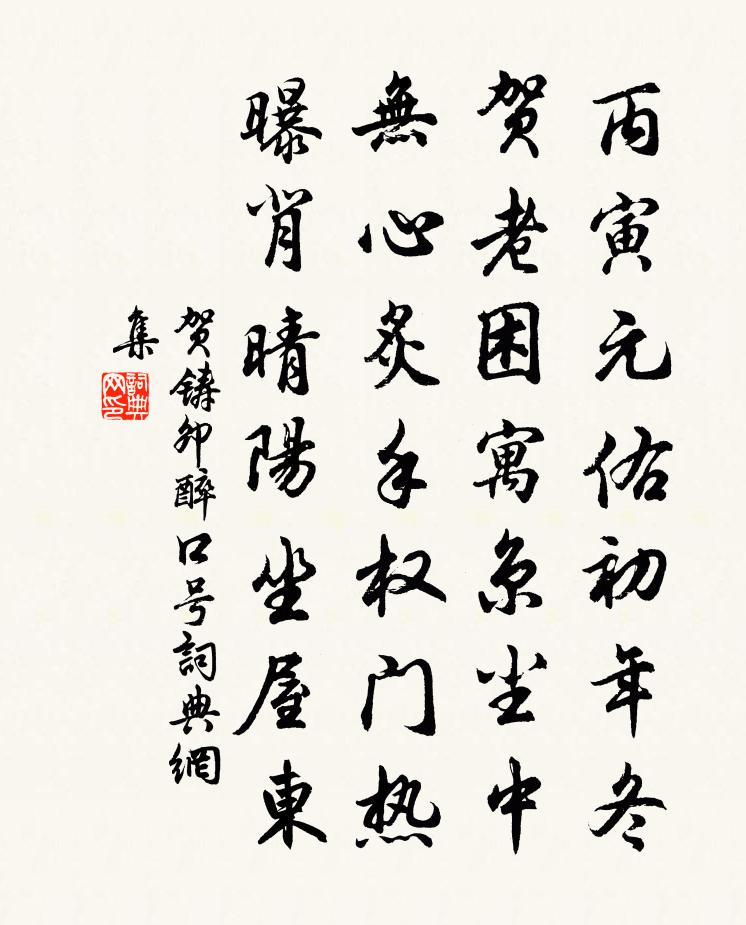 丙寅元佑初年冬
贺老困寓京尘中
無心炙手权门热
曝背晴陽坐屋東
贺鑄卯醉口号詞典網
集
詞典網印